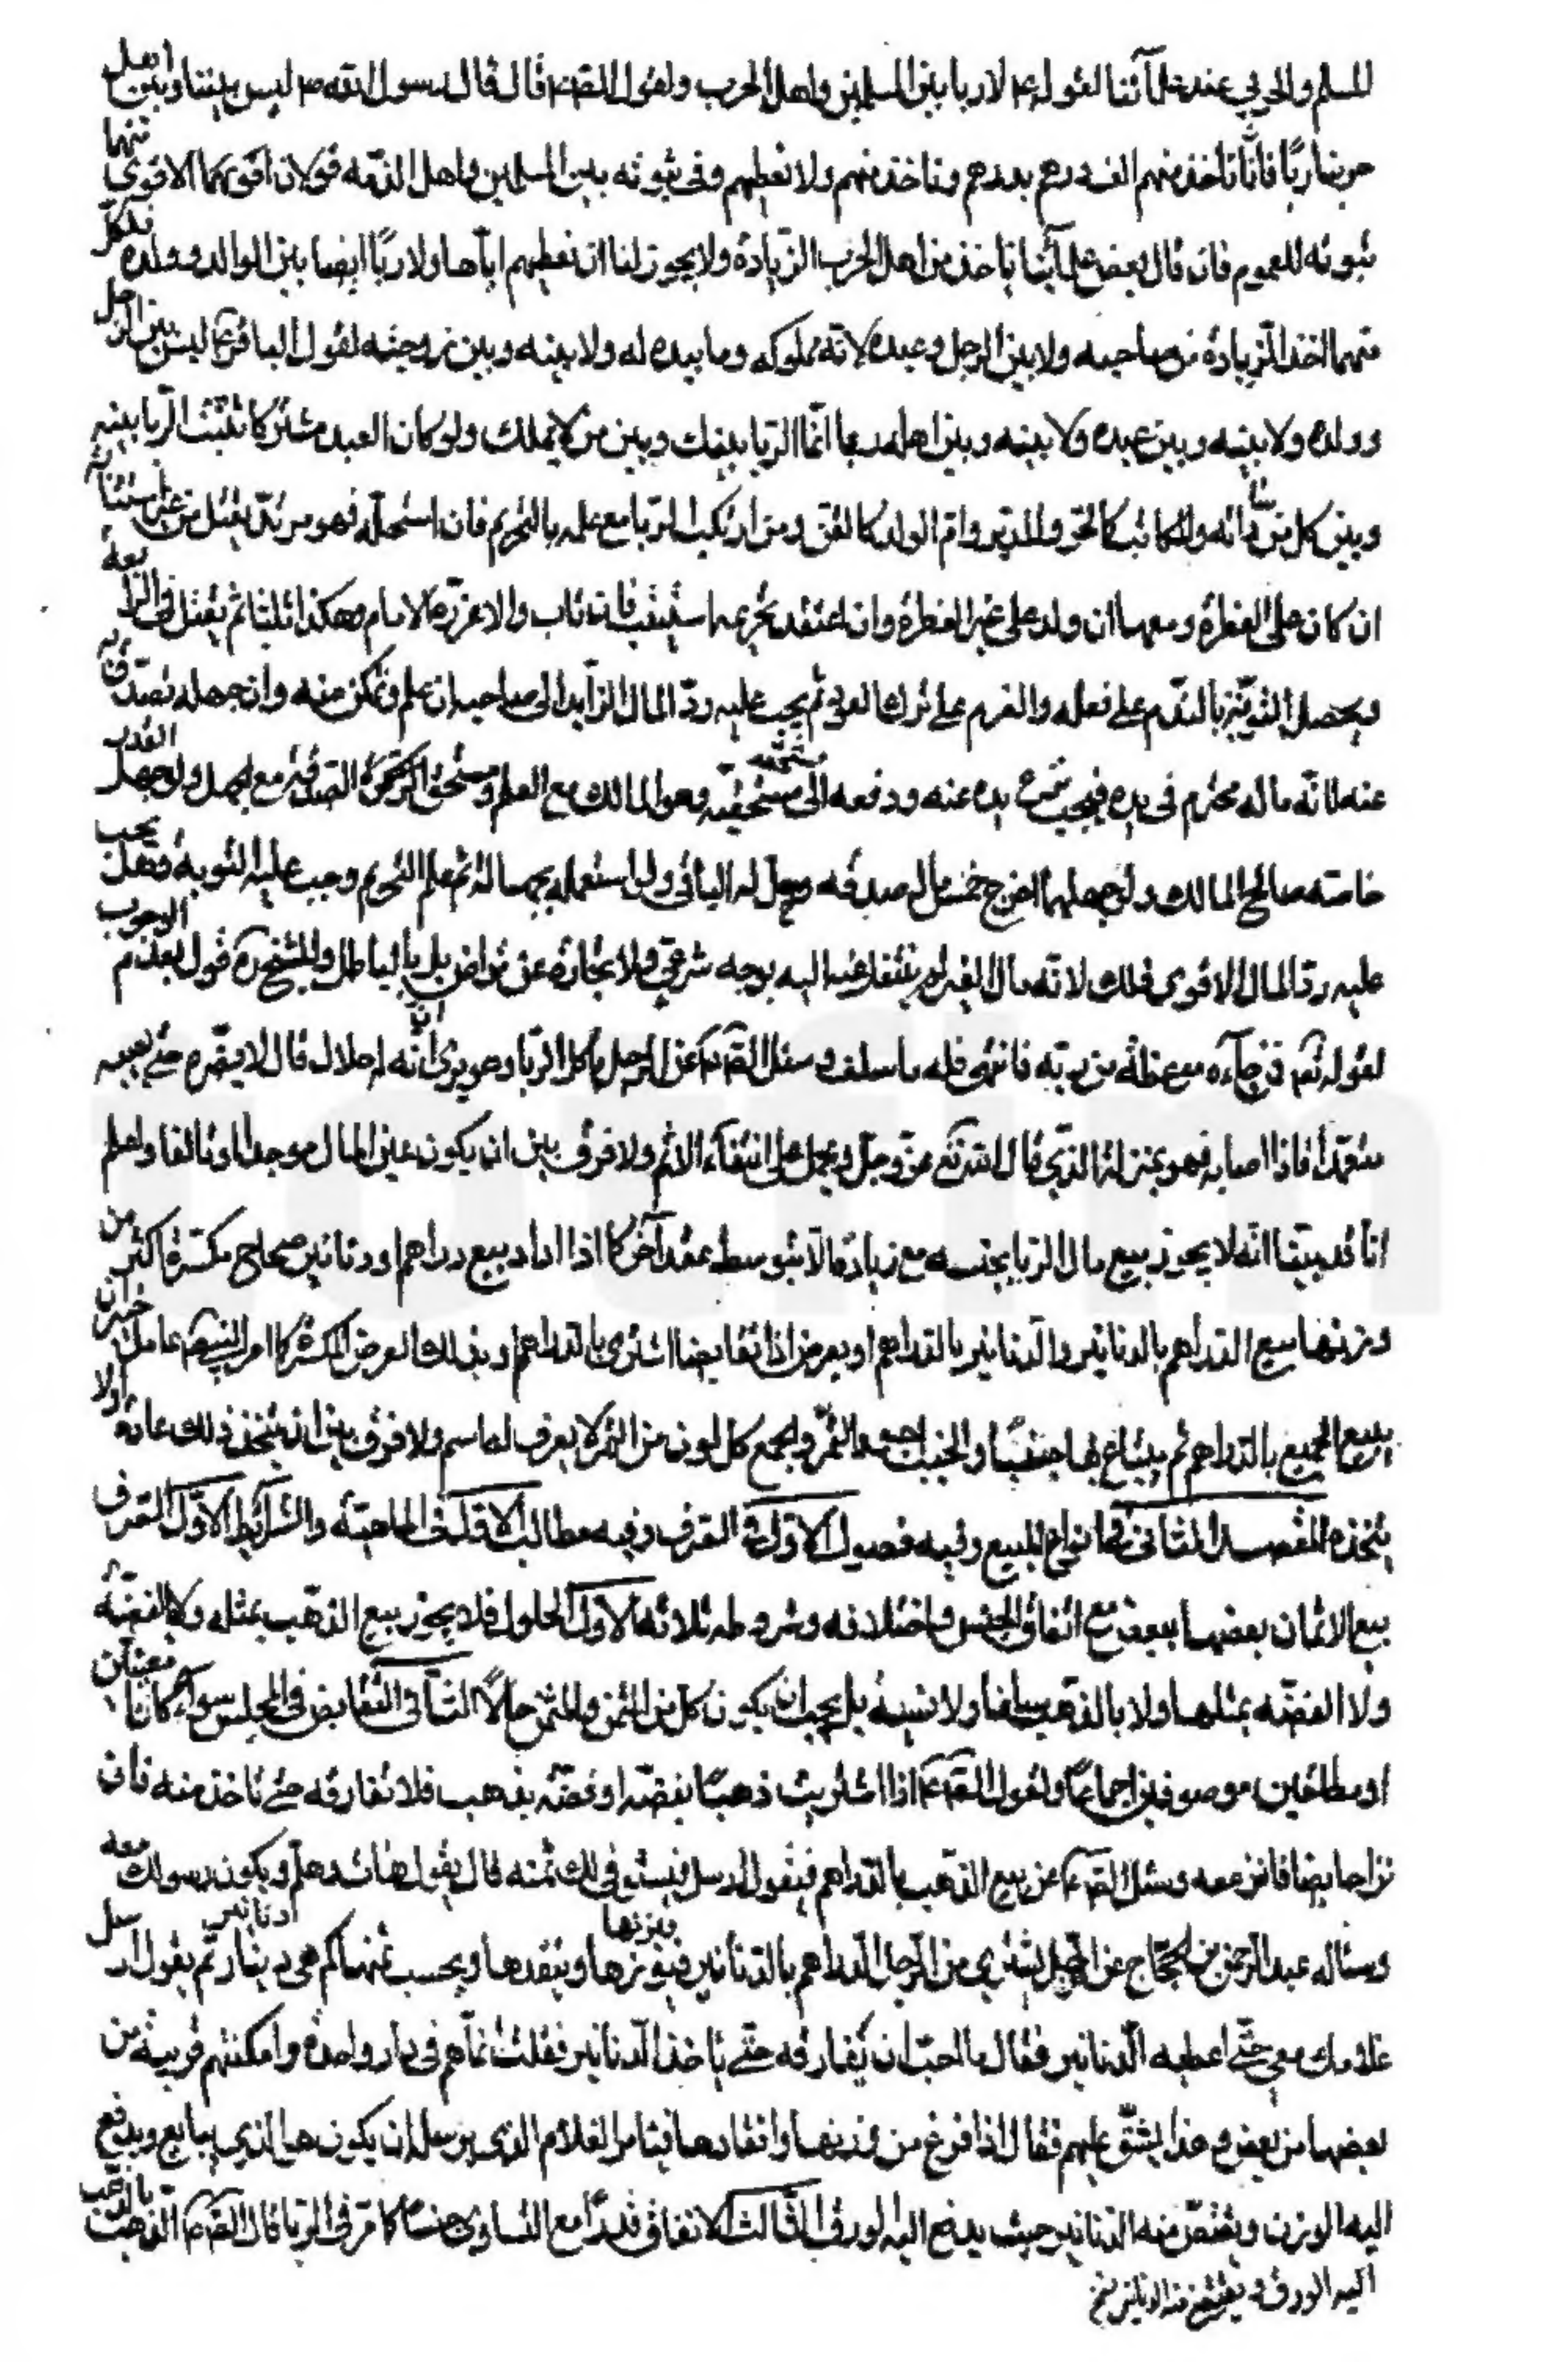 المسلم والحربي عند علمآئنا لقوله ع لا ربا بين المسلمين واهل الحرب ولقول الصّ ع قال قال رسول الله ص ليس بيننا وبين اهل
حربنا ربًا فانّا ناخذ منهم الف درهم بدرهم وناخذ منهم ولا نعطيهم وفي ثبوته بين المسلمين واهل الذمّه قولان اقويهما الاقوى
ثبوته للعموم فان قال بعض علمآئنا ناخذ من اهل الحرب الزيادة ولا يجوز لنا ان نعطيهم ايّاها ولا ربًا ايضا بين الوالد وولده فلكل
منهما اخذ الزيادة من صاحبه ولا بين الرجل وعبده لانّه مملوكه وما بيده له ولا بينه وبين زوجته لقول الباقر ع ليس بين الرجل
وولده ولا بينه وبين عبده ولا بينه وبين اهله ربا انّما الربا بينك وبين من لا يملك ولو كان العبد مشتركا ثبت الربا بينه
وبين كل من والمكاتب كالحرّ والمدبر وامّ الولد كالقنّ ومن ارتكب الربا مع علمه بالتحريم فان استحلّه فهو مرتدّ يقتل من غير استتابة
ان كان على الفطرة ومعها ان ولد على غير الفطرة وان اعتقد تحريمه استتيب فان تاب والا عزّره الامام وهكذا ثلثا ثم يقتل في الرابعة
ويحصل التوبة بالندم على فعله والعزم على ترك العود ثم يجب عليه ردّ المال الزايد الى صاحبه ان علم وتمكن منه وان جهله تصدّق به
عنه لانّه مال محترم في يده فيجب يده عنه ودفعه الى مستحقّه وهو المالك مع العلم ومستحق الزكوة الصدقة مع الجهل ولو جهل القدر
خاصّه صالح المالك ولو جهلهما اخرج خمس المال صدقه وحل له الباقي ولو استعمله بجهالة ثم علم التحريم وجب عليه التوبة وهل يجب
عليه ردّ المال الاقوى ذلك لانّه مال الغير لم ينتقل عنه اليه بوجه شرعي ولا تجارة عن تراض بل بالباطل وللشيخ ره قول بعدم الوجوب
لقوله تع فمن جآءه موعظة من ربّه فانتهى فله ما سلف وسئل الصّ ع عن الرجل ياكل الربا وهو يرى انّه له حلال قال لا يضرّه حتى يصيبه
متعمّدا فاذا اصابه فهو بمنزلة الذي قال الله تع عزّ وجلّ ويحمل على انتفآء الاثم ولا فرق بين ان يكون عين المال موجودا او تالفا واعلم
انّا قد بيّنا انّه لا يجوز بيع مال الربا بجنسه مع زيادة الا بتوسط عقد آخر كما اذا اراد بيع دراهم او دنانير صحاح بمكسّرة اكثر من
وزنها بيع الدراهم بالدنانير والدنانير بالدراهم او بعرض اذا تقابضا اشترى بالدراهم وبذلك العرض المكسّرة كما امر النبي ص عامل خيبر ان
يبيع الجميع بالدراهم ثم يبتاع بها جنيبًا والجنيب اجود التمر والجمع كل لون من التمر لا يعرف له اسم ولا فرق بين ان يتخذ ذلك عادة اولا
يتخذه المقصد الثاني في انواع البيع وفيه فصول الاول في الصرف وفيه مطالب الاول في الماهية والشرائط الاوّل الصرف
بيع الاثمان بعضها ببعض مع اتفاق الجنس واختلافه وشروطه ثلاثة الاول الحلول فلا يجوز بيع الذهب بمثله ولا بالفضّة
ولا الفضّه بمثلها ولا بالذهب سلفا ولا نسيئة بل يجب ان يكون كل من الثمن والمثمن حالًا الثاني التقابض في المجلس سوآء كانا معيّنين
او مطلقين موصوفين اجماعًا ولقول الصّ ع اذا اشتريت ذهبًا بفضّة او فضّة بذهب فلا تفارقه حتى تاخذ منه فان
نزا حايطا فانز معه وسئل الصّ ع عن بيع الذهب بالدراهم فيقول ارسل فيستوفي لك ثمنه قال يقول هات وهلم ويكون رسولك معه
وساله عبد الرحمن بن الحجّاج عن الرجل يشتري من الرجل الدراهم بالدنانير فيزنها وينقدها ويحسب ثمنها كم هو دينار ثم يقول ارسل
غلامك معي حتى اعطيه الدنانير فقال ما احبّ ان يفارقه حتى ياخذ الدنانير فقلت انما هم في دار واحدة وامكنتهم قريبة من
بعضها من بعض وهذا يشقّ عليهم فقال اذا فرغ من وزنها وانقادها فليامر الغلام الذي يرسله ان يكون هو الذي يبايعه ويدفع
اليه الورق ويقبض منه الدنانير حيث يدفع اليه الورق الثالث الاتفاق قدرا مع التساوي جنسا كما مرّ في الربا قال الصّ ع الذهب بالذهب
اليه الورق ويقبض منه الدنانير نخ